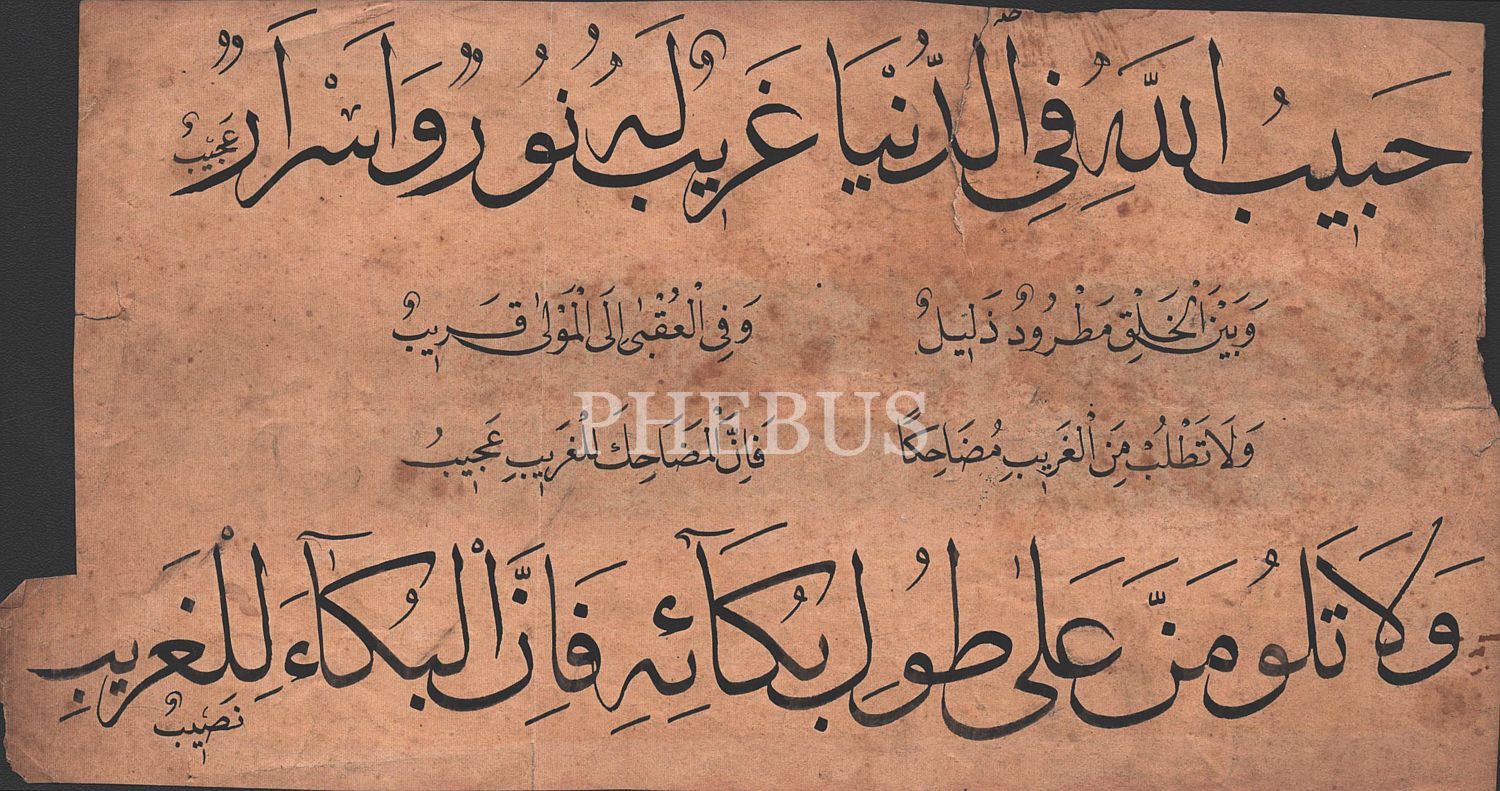 حَبِيبُ اللَّهِ فِي الدُّنْيَا غَرِيبٌ لَهُ نُورٌ وَاَسْرَارٌ عَجِيبٌ
وَبَيْنَ الْخَلْقِ مَطْرُودٌ ذَلِيلٌ وَفِي الْعُقْبٰى اِلَى الْمَوْلٰى قَرِيبٌ
وَلَا تَطْلُبْ مِنَ الْغَرِيبِ مُضَاحِكًا فَاِنَّ الْمَضَاحِكَ لِلْغَرِيبِ عَجِيبٌ
PHEBUS
وَلَا تَلُومَنَّ عَلٰى طُولِ بُكَآئِهِ فَاِنَّ الْبُكَآءَ لِلْغَرِيبِ نَصِيبٌ